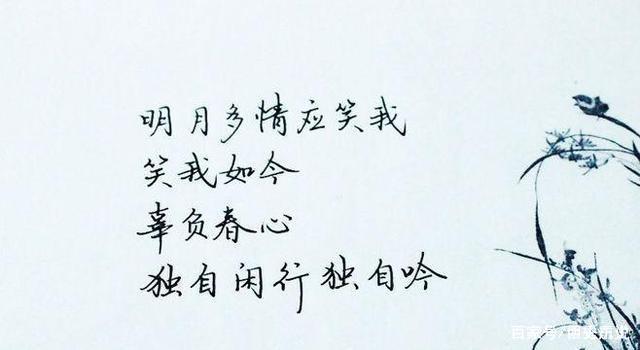 明月多情应笑我
笑我如今
辜负春心
独自闲行独自吟
百家号/曲奖历史